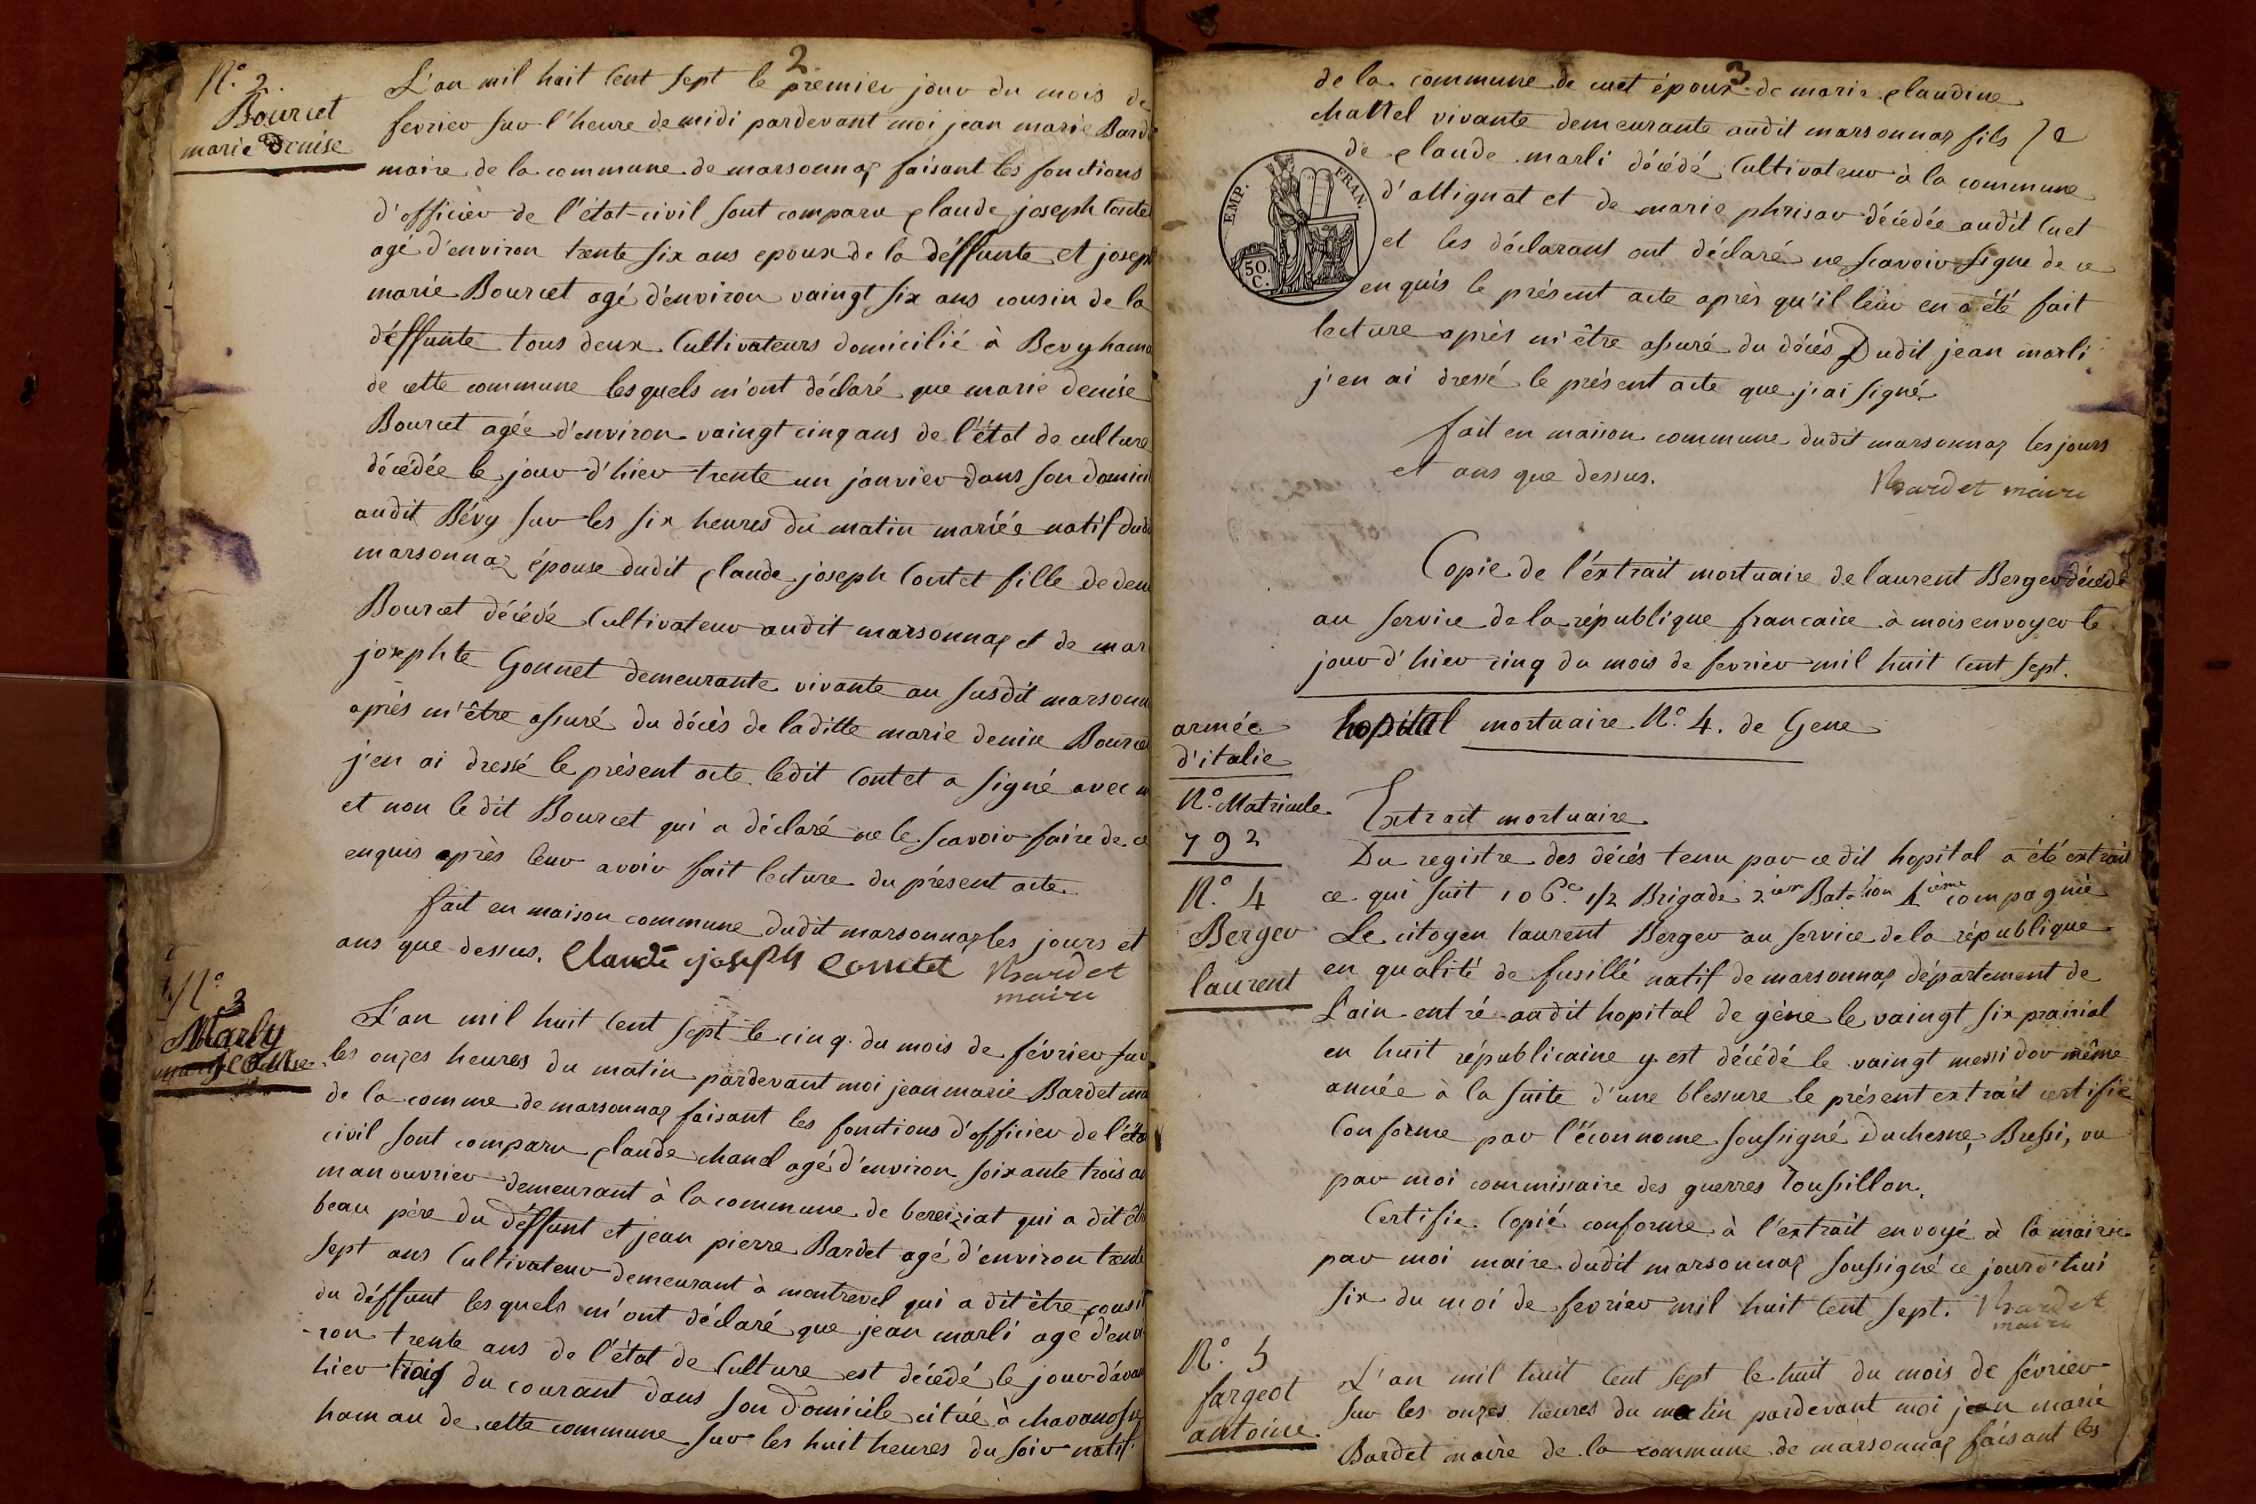 2
N.º 2.
Bourcet
marie denise
L'an mil huit Cent sept le premier jour du mois de
fevrier sur l'heure de midi pardevant moi jean marie Bard
maire de la commune de marsonnaz faisant les fonctions
d'officier de l'état civil sont comparu Claude joseph Contet
agé d'environ trente six ans epoux de la déffunte et joseph
marie Bourcet agé d'environ vaingt six ans cousin de la
déffunte tous deux Cultivateurs domicilié à Bevy hama
de cette commune lesquels m'ont déclaré que marie denise
Bourcet agée d'environ vaingt cinq ans de l'état de culture
décédée le jour d'hier trente un janvier dans son domici
audit Bévy sur les six heures du matin mariée natif dudi
marsonnaz épouse dudit Claude joseph Contet fille de deni
Bourcet décédé Cultivateur audit marsonnaz et de mar
josephte Gonnet demeurante vivante au susdit marsonn
après m'être assuré du décès de laditte marie denise Bource
j'en ai dressé le présent acte ledit Contet a signé avec m
et non le dit Bourcet qui a déclaré ne le scavoir faire de ce
enquis après leur avoir fait lecture du présent acte
fait en maison commune dudit marsonnaz les jours et
ans que dessus. Claude joseph Conttet Bardet
maire
N.º 3
Marly
jean
L'an mil huit Cent sept le cinq du mois de février sur
les onzes heures du matin pardevant moi jean marie Bardet mai
de la comme de marsonnaz faisant les fonctions d'officier de l'éta
civil sont comparu Claude chanel agé d'environ soixante trois an
manouvrier demeurant à la commune de bereiziat qui a dit êtr
beau père du déffunt et jean pierre Bardet agé d'environ trente
sept ans Cultivateur demeurant à montrevel qui a dit être cousi
du déffunt lesquels m'ont déclaré que jean marli agé d'envi
ron trente ans de l'état de Culture est décédé le jour d'avan
hier trois du courant dans son domicile citué à
hamau de cette commune sur les huit heures du soir natif
3
de la commune de cuet époux de marie Claudine
chattel vivante demeurante audit marsonnaz fils
de Claude marli décédé Cultivateur à la commune
d'attignat et de marie phrisar décédée audit Cuet
et les déclarant ont déclaré ne scavoir signe de ce
enquis le présent acte après qu'il leur en a été fait
lecture après m'être assuré du décès Dudit jean marli
j'en ai dressé le présent acte que j'ai signé
EMP. FRAN.
50. C.
fait en maison commune dudit marsonnaz les jours
et ans que dessus. Bardet maire
Copie de l'éxtrait mortuaire de laurent Berger décédé
au service de la république francaise à mois envoyer le
jour d'hier cinq du mois de fevrier mil huit Cent sept.
armée
d'italie
hopital mortuaire N.º 4. de Gene
N.º Matricule
792
Extrait mortuaire
N.º 4
Berger
laurent
Du registre des décés tenu par ce dit hopital a été extrait
ce qui suit 106.e 1/2 Brigade 2ier Bat.lion 1ième compagnie
Le citoyen laurent Berger au service de la république
en qualité de fusillé natif de marsonnaz département de
L'ain entré audit hopital de gène le vaingt six prairial
en huit républicaine y est décédé le vaingt messidor même
année à la suite d'une blessure le présent extrait certifié
Conforme par l'éconnome soussigné Duchesne, Bressi, vu
par moi commissaire des guerres Roussillon.
Certifie Copié conforme à l'extrait envoyé à la mairie
par moi maire dudit marsonnaz soussigné ce jourd'hui
six du moi de fevrier mil huit Cent sept. Bardet
maire
N.º 5
fargeot
antoine
L'an mil huit Cent sept le huit du mois de février
sur les onzes heures du matin pardevant moi jean marie
Bardet maire de la commune de marsonnaz faisant les